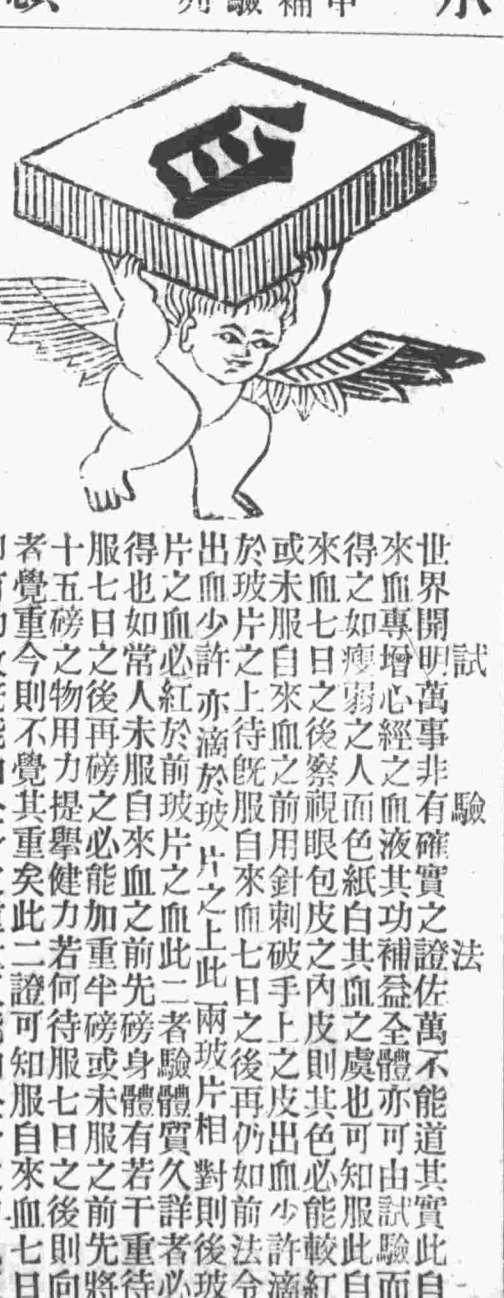 血
試驗法
世界開明萬事非有確實之證佐萬不能道其實此自
來血專增心經之血液其功補益全體亦可由試驗而
得之如瘦弱之人面色紙白其血之虞也可知服此自
來血七日之後察視眼包皮之內皮則其色必能較紅
或未服自來血之前用針刺破手上之皮出血少許滴
於玻片之上待旣服自來血七日之後再仍如前法令
出血少許亦滴於玻片之上此兩玻片相對則後玻
片之血必紅於前玻片之血此二者驗體質久詳者必
得也如常人未服自來血之前先磅身體有若干重待
服七日之後再磅之必能加重半磅或未服之前先將
十五磅之物用力提擧健力若何待服七日之後則向
者覺重今則不覺其重矣此二證可知服自來血七日